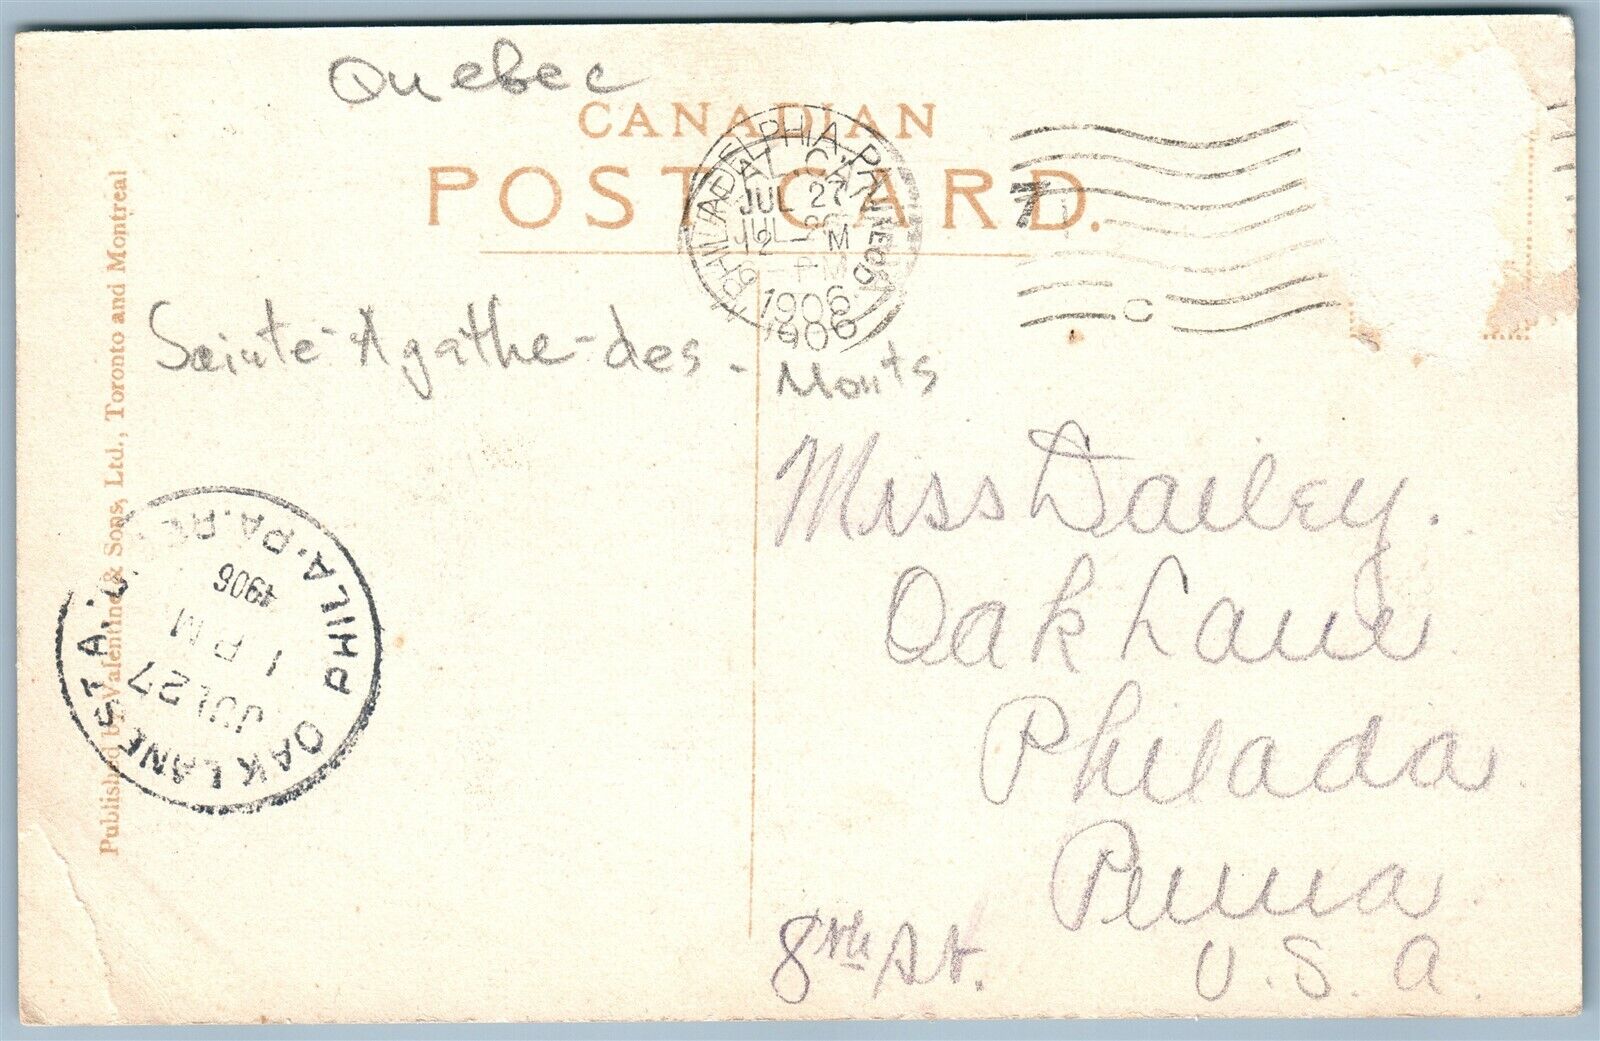 Quebec
CANADIAN
POST CARD.
PHILADELPHIA, PA.
JUL 27
JUL 26
12 - M
- PM
1906
1906
7
C
Published by Valentine & Sons, Ltd., Toronto and Montreal
Sainte-Agathe-des-Monts
Miss Dailey.
Oak Lane
Philada
Penna
8th St.
U.S.A.
OAK LANE STA.
PHILA. PA.
JUL 27
1 PM
1906